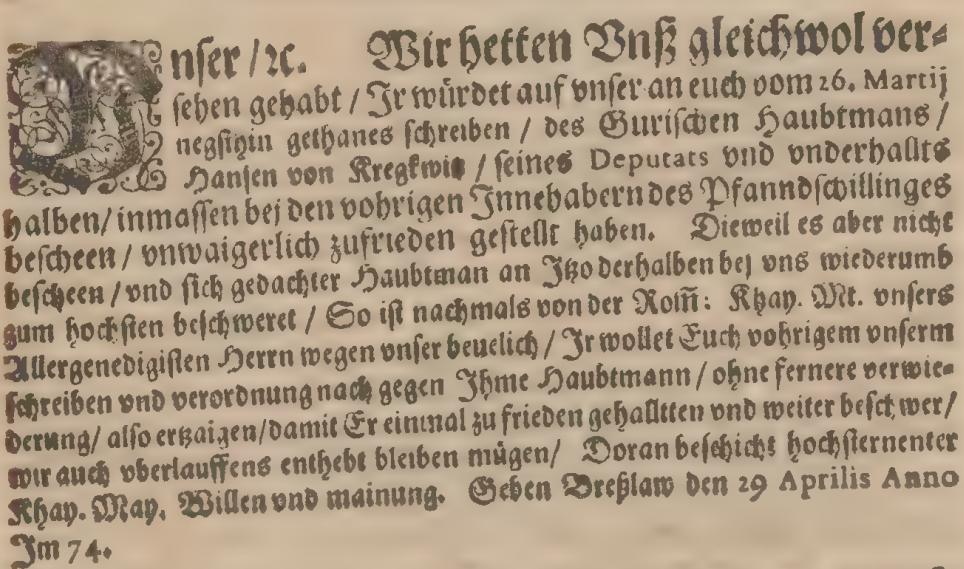 Unſer /ꝛc. Wir hetten Vnß gleichwol ver⸗
ſehen gehabt / Ir würdet auf vnſer an euch vom 26. Martij
negſthin gethanes ſchreiben / des Guriſchen Haubtmans /
Hanſen von Kregkwitz / ſeines Deputats vnd vnderhallts
halben / inmaſſen bej den vohrigen Innehabern des Pfanndſchillinges
beſcheen / vnwaigerlich zufrieden geſtellt haben. Dieweil es aber nicht
beſcheen / vnd ſich gedachter Haubtman an Itzo derhalben bej vns wiederumb
zum hochſten beſchweret / So iſt nachmals von der Rom̃: Khay. Mt. vnſers
Allergenedigiſten Herrn wegen vnſer beuelich / Ir wollet Euch vohrigem vnſerm
ſchreiben vnd verordnung nach gegen Ihme Haubtmann / ohne fernere verwie⸗
derung / alſo ertzaigen / damit Er einmal zu frieden gehalltten vnd weiter beſchwer /
wir auch vberlauffens enthebt bleiben mügen / Doran beſchicht hochſternenter
Khay. May. Willen vnd mainung. Geben Breßlaw den 29 Aprilis Anno
Im 74.